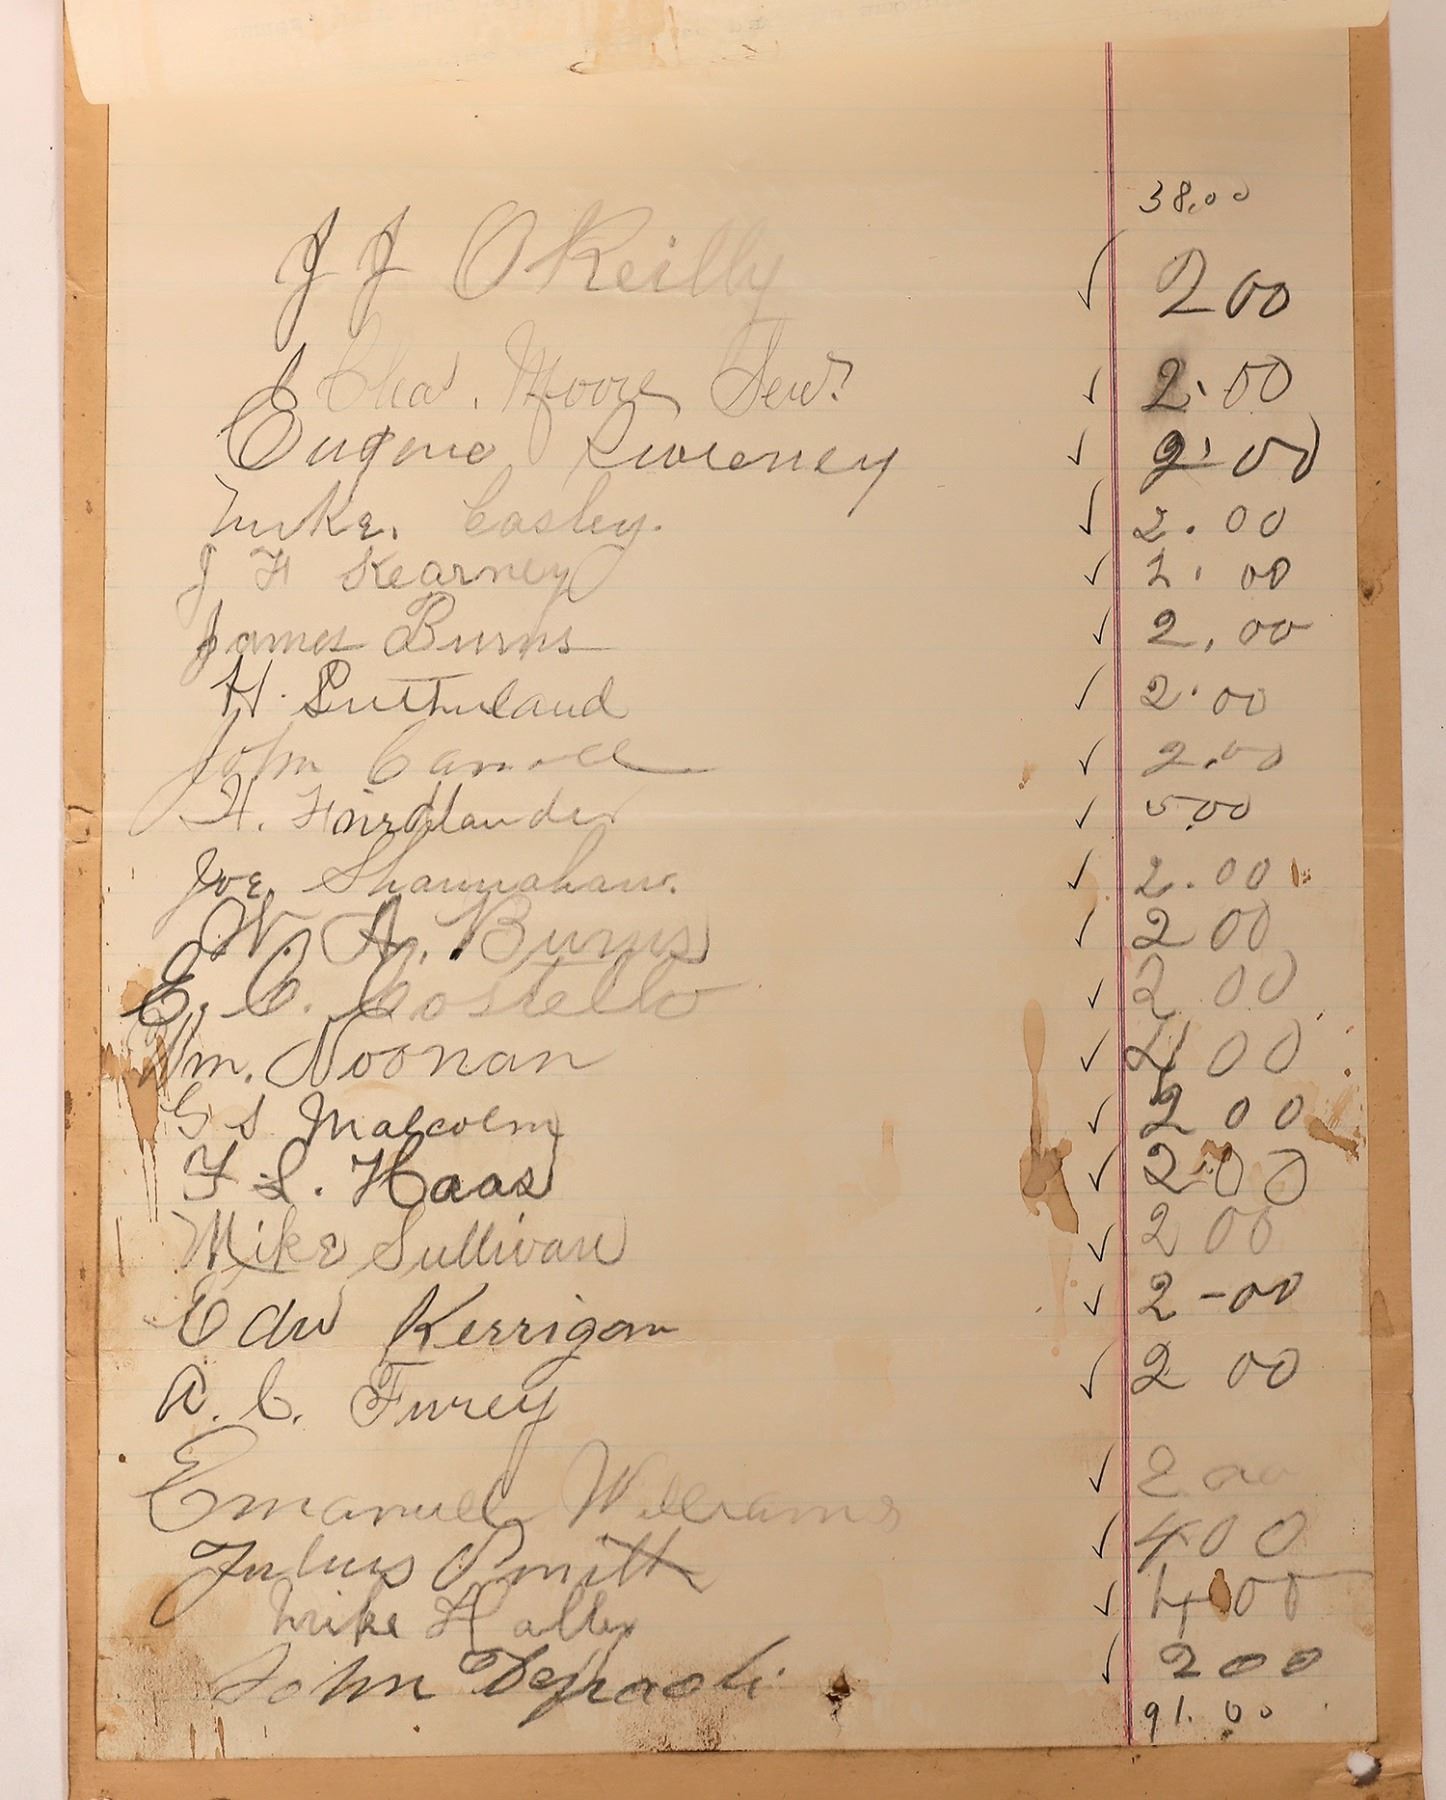 38.00
J J OReilly ✓ 2 00
Chas. Moore ✓ 2.00
Eugene Sweeney ✓ 2.00
Luke. Casley. ✓ 2.00
J H Kearney ✓ 2.00
James Burns ✓ 2.00
H. Sutherland ✓ 2.00
John Carroll ✓ 2.00
H. ✓ 5.00
Joe. Shannahan. ✓ 2.00
W. A. Burns ✓ 2 00
E. C. Costello ✓ 2 00
Wm. Noonan ✓ 4 00
G S Malcolm ✓ 2 00
F. L. Haas ✓ 2.00
Mike Sullivan ✓ 2 00
Edw Kerrigan ✓ 2-00
A. C. Furey ✓ 2 00
Emanuell Williams ✓ 2 00
Julius Smith ✓ 4 00
Mike ✓ 4 00
John ✓ 2 00
91.00